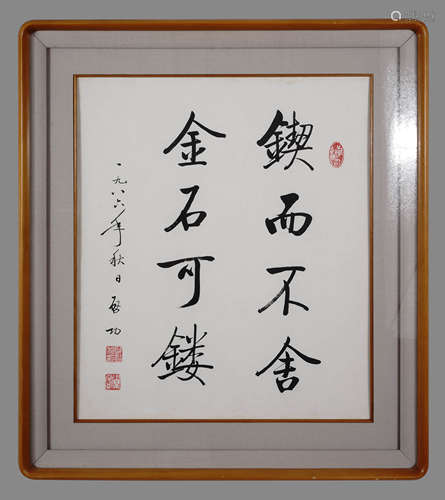 鍥而不舍
金石可鏤
一九八六年秋日启功